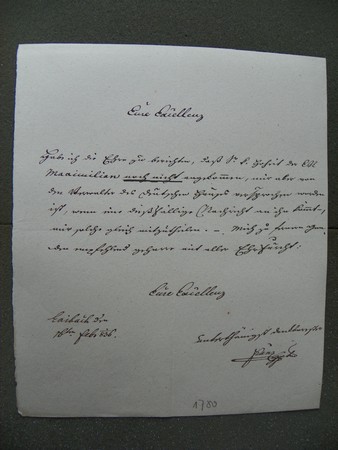 Eure Excellenz
Habe ich die Ehre zu berichten, daß Sr. k. Hoheit der
Maximilian noch nicht angekommen, mir aber von
den Verwalter des deutschen Hauses versprochen worden
ist, wenn eine dießfällige Nachricht an ihn kömmt,
mir solche gleich mitzutheilen. – Mich zu
den empfehlend geharre mit aller Ehrfurcht.
Eure Excellenz
Laibach den
16ten
unterthänigst
1780